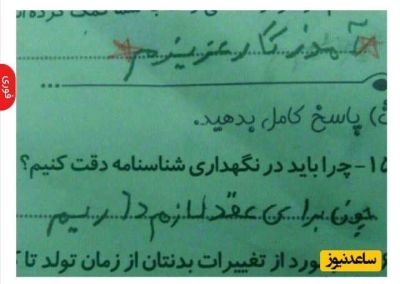 کمک کرده‌اند
آموزگار عزیزم
ث) پاسخ کامل بدهید.
۱۵- چرا باید در نگهداری شناسنامه دقت کنیم؟
چون برای عقد لازم داریم
مورد از تغییرات بدنتان از زمان تولد تا
فوری
ساعدنیوز